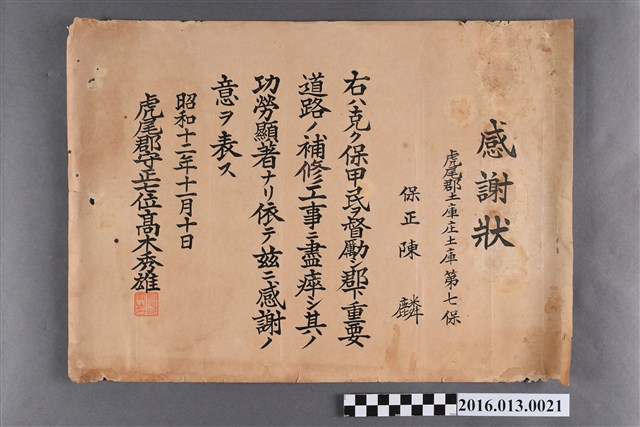 感謝狀
虎尾郡土庫庄土庫第七保
保正陳麟
右ハ克ク保甲民ヲ督勵シ郡下重要
道路ノ補修工事ニ盡瘁シ其ノ
功勞顯著ナリ依テ玆ニ感謝ノ
意ヲ表ス
昭和十二年十一月十日
虎尾郡守正七位髙木秀雄
2016.013.0021